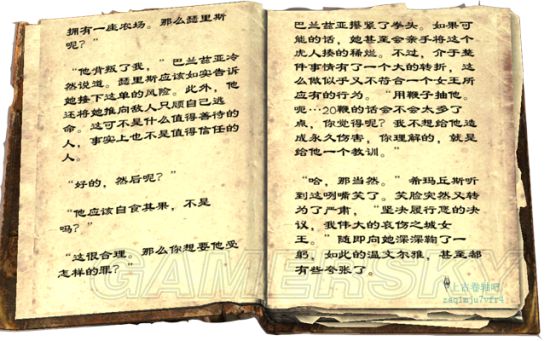 拥有一座农场。那么瑟里斯
呢？”
“他背叛了我，”巴兰兹亚冷
然说道。瑟里斯应该如实告诉
她接下这单的风险。此外，他
还将她推向敌人只顾自己逃
命。这可不是什么值得善待的
人，事实上也不是值得信任的
人。
“好的，然后呢？”
“他应该自食其果，不是
吗？”
“这很合理。那么你想要他受
怎样的罪？”
巴兰兹亚攥紧了拳头。如果可
能的话，她甚至会亲手将这个
虎人揍的稀烂。不过，介于整
件事情有了一个大的转折，这
么做似乎又不符合一个女王所
应有的行为。“用鞭子抽他。
呃…20鞭的话会不会太多了
点，你觉得呢？我不想给他造
成永久伤害，你理解的，就是
给他一个教训。”
“哈，那当然。”希玛丘斯听
到这咧嘴笑了。笑脸突然又转
为了严肃，“坚决履行您的决
议，我伟大的哀伤之城女
王。”随即向她深深鞠了一
躬，如此的温文尔雅，甚至都
有些夸张了。
GAMERSKY
上古卷轴吧
zaqimju7vfr4